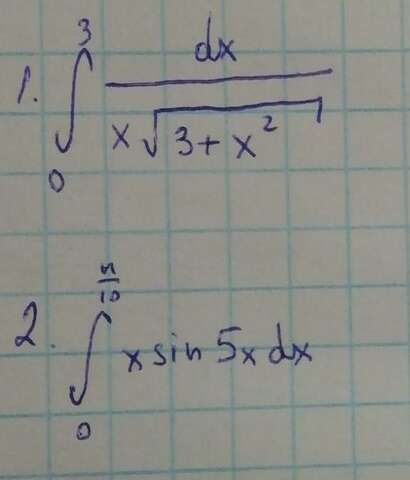 1. ∫₀³ dx / (x√(3 + x²))
2. ∫₀^(π/10) x sin 5x dx